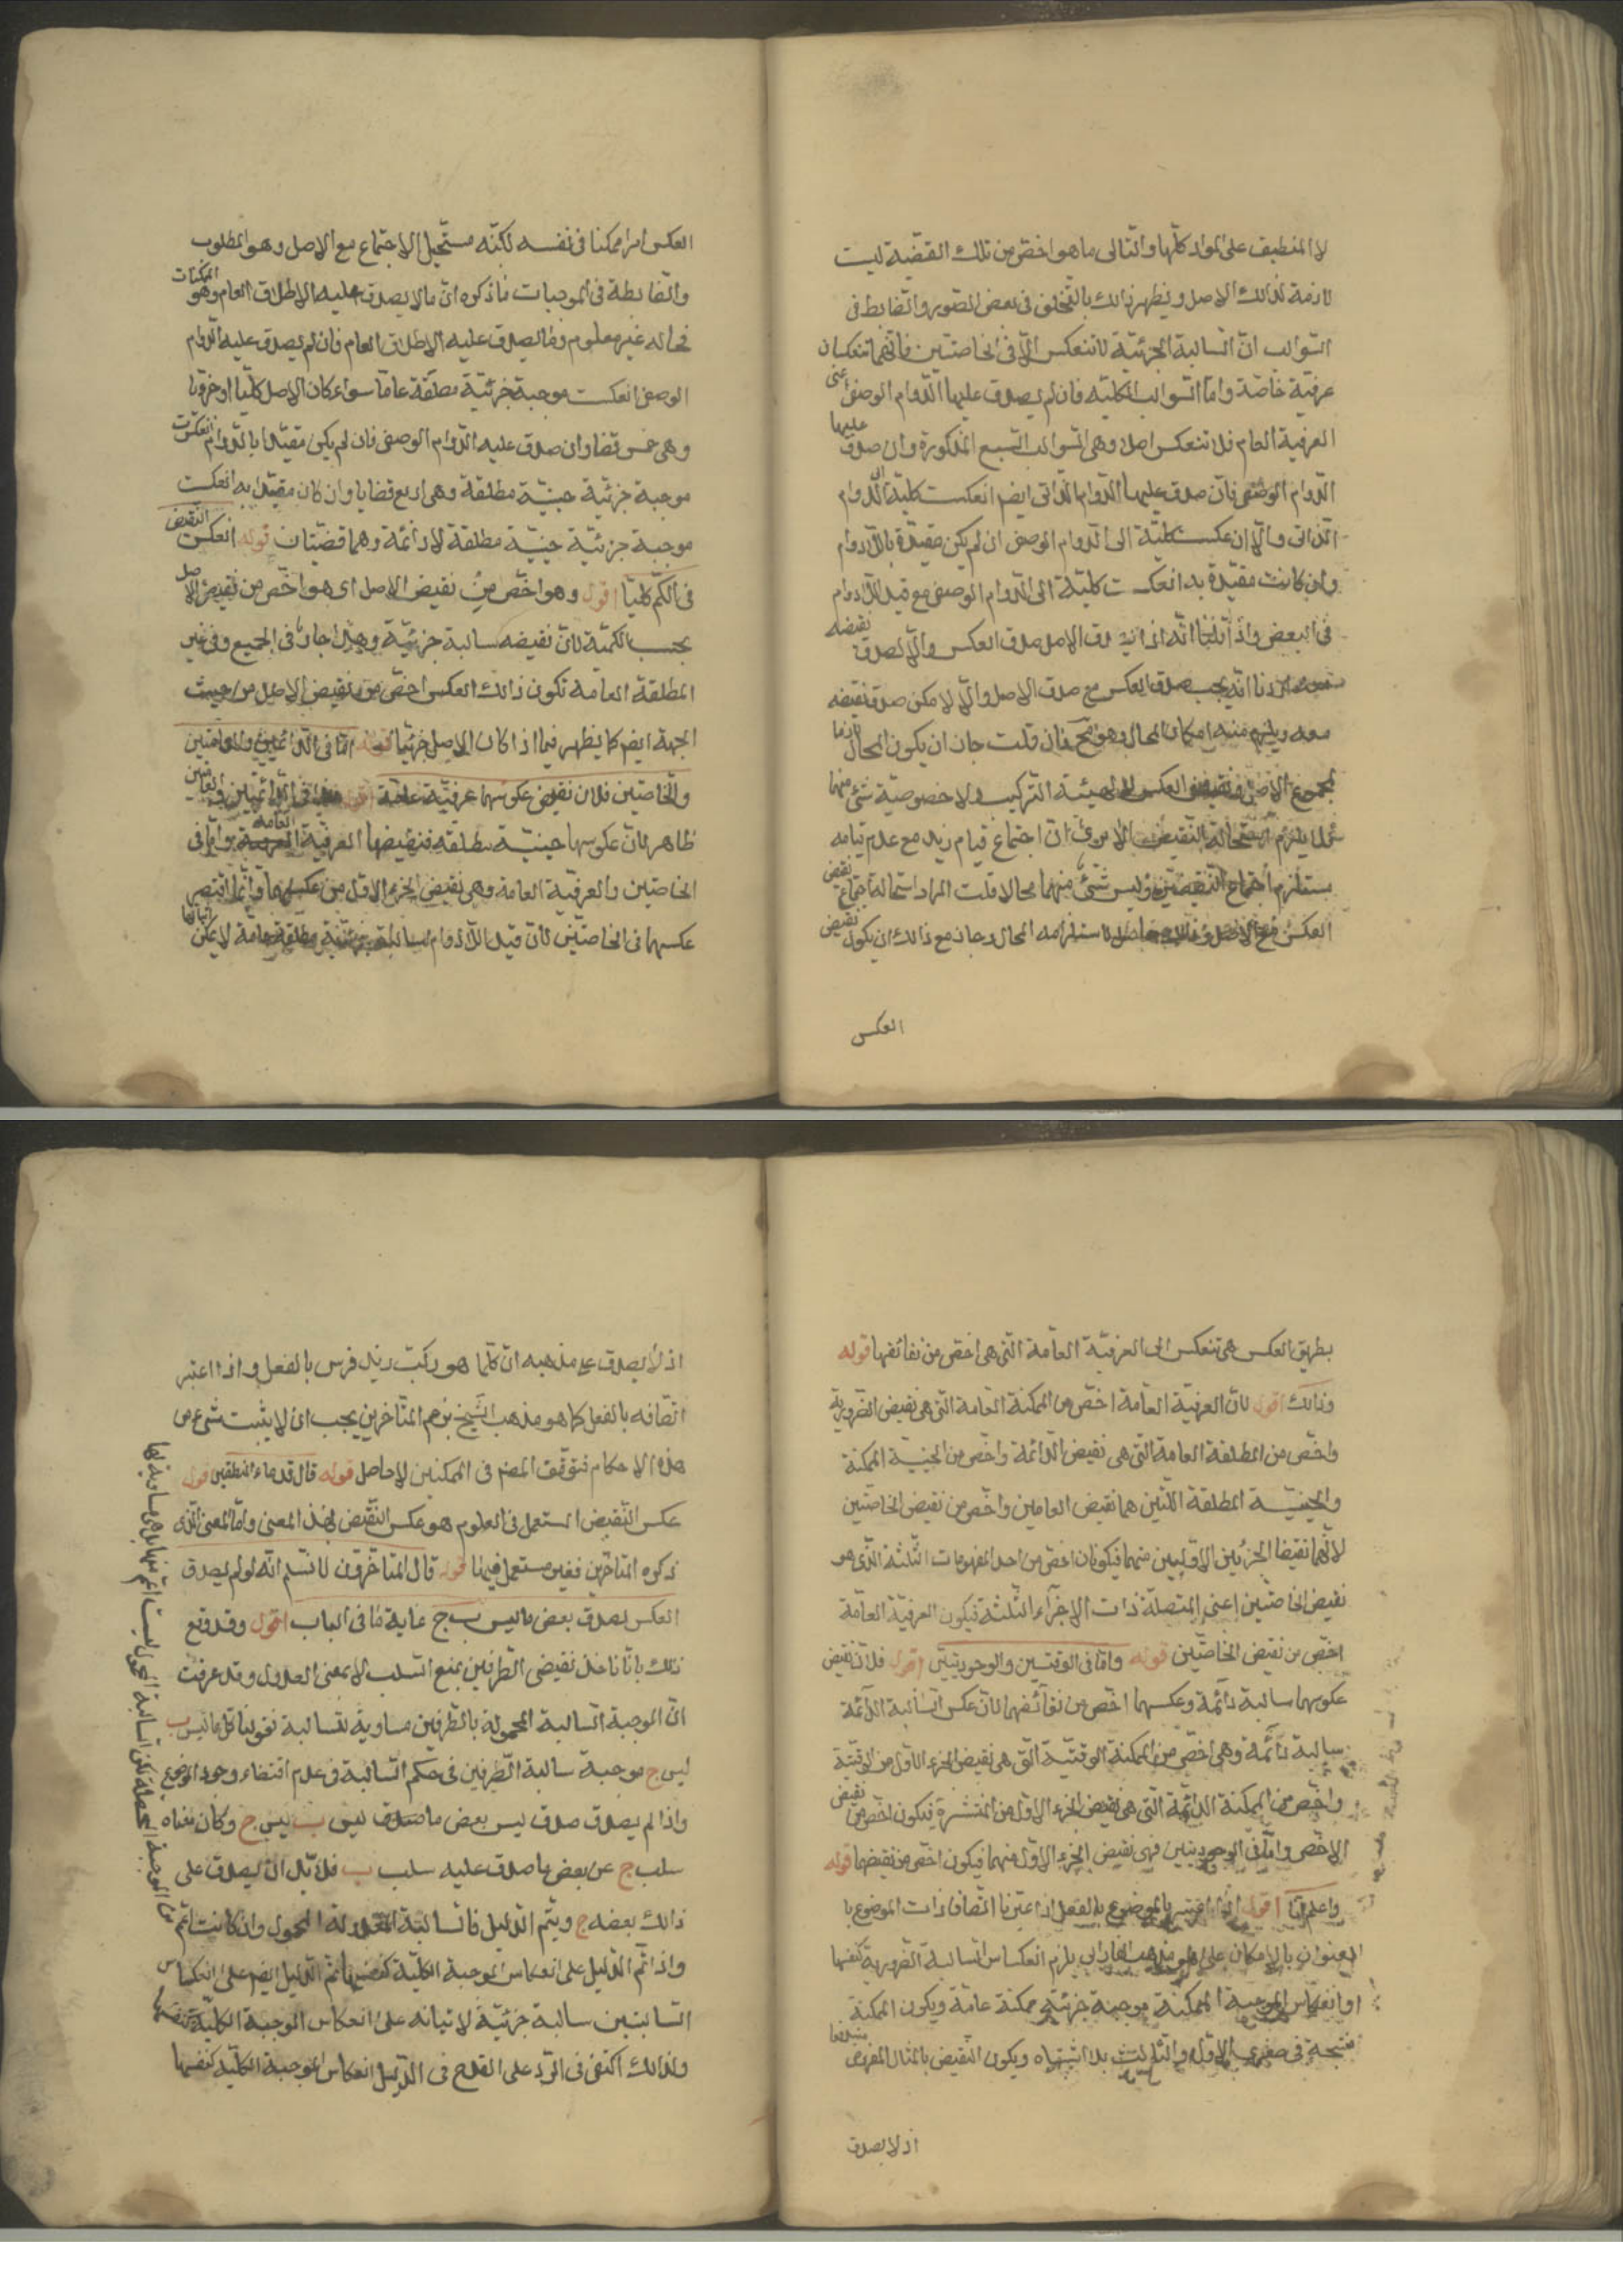 لا المنطبق على المواد كلها والتالى ما هو اخص من تلك القضية ليست
لازمة لذلك الاصل ويظهر ذلك بالتخلف فى بعض الصور والضابط فى
السوالب ان السالبة الجزئية لا تنعكس الا فى الخاصتين فانهما تنعكسان
عرفية خاصة واما السوالب الكلية فان لم يصدق عليها الدوام الوصفى اعنى
العرفية العام فلا تنعكس اصلا وهى السوالب السبع المذكورة وان صدق عليها
الدوام الوصفى فان صدق عليها الدوام الذاتى ايضا انعكست كلية الى الدوام
الذاتى والا انعكست كلية الى الدوام الوصفى ان لم يكن مقيدة باللادوام
وان كانت مقيدة به انعكست كلية الى الدوام الوصفى مع قيد اللادوام
فى البعض واذا قلنا انه اذا صدق الاصل صدق العكس والا لصدق نقيضه
انه يجب صدق العكس مع صدق الاصل والا لامكن صدق نقيضه
معه ويلزم منه امكان المحال وهو مح فان قلت جاز ان يكون المحال لازما
لمجموع الاصل ونقيض العكس لهيئة التركيب لا خصوصية شئ منهما
فلا يلزم استحالة النقيض الا يرى ان اجتماع قيام زيد مع عدم قيامه
يستلزم اجتماع النقيضين وليس شئ منهما محالا قلت المراد استحالة اجتماع نقيض
العكس مع الاصل وذلك حاصل لاستلزامه المحال وجاز مع ذلك ان يكون نقيض
العكس
العكس امرا ممكنا فى نفسه لكنه مستحيل الاجتماع مع الاصل وهو المطلوب
والضابطة فى الموجبات ما ذكره ان ما لا يصدق عليه الاطلاق العام وهو الممكنات
فحاله غير معلوم وما يصدق عليه الاطلاق العام فان لم يصدق عليه الدوام
الوصفى انعكست موجبة جزئية مطلقة عامة سواء كان الاصل كليا او جزئيا
وهى خمس قضايا وان صدق عليه الدوام الوصفى فان لم يكن مقيدا بالدوام انعكست
موجبة جزئية حينية مطلقة وهى اربع قضايا وان كان مقيدا به انعكست
موجبة جزئية حينية مطلقة لا دائمة وهما قضيتان قوله انعكس النقيض
فى الكم كليا اقول وهو اخص من نقيض الاصل اى هو اخص من نقيض الاصل
بحسب الكمية لان نقيضه سالبة جزئية وهذا جار فى الجميع وفى غير
المطلقة العامة تكون ذلك العكس اخص من نقيض الاصل من حيث
الجهة ايضا كما يظهر فيما اذا كان الاصل جزئيا قوله اما فى الدائمتين والعامتين
والخاصتين فلان نقيض عكوسها عرفية عامة اقول هذا فى الدائمتين والعامتين
ظاهر لان عكوسها حينية مطلقة فنقيضها العرفية العامة واما فى
الخاصتين والعرفية العامة وهى نقيض الجزء الاول من عكسهما وانما اقتصر
عكسهما فى الخاصتين لان قيد اللادوام سالبة جزئية مطلقة عامة لا يمكن اثباتها
بطريق العكس هى تنعكس الى العرفية العامة التى هى اخص من نقائضها قوله
وذلك اقول لان العرفية العامة اخص من الممكنة العامة التى هى نقيض الضرورية
واخص من المطلقة العامة التى هى نقيض الدائمة واخص من الحينية الممكنة
والحينية المطلقة اللتين هما نقيض العامتين واخص من نقيض الخاصتين
لانهما نقيضا الجزئين الاولين منهما فيكونان اخص من احد المفهومات الثلثة الذى هو
نقيض الخاصتين اعنى المتصلة ذات الاجزاء الثلثة فيكون العرفية العامة
اخص من نقيض الخاصتين قوله واما فى الوقتيتين والوجوديتين اقول فلان نقيض
عكوسها سالبة دائمة وعكسهما اخص من نقائضهما لان عكس السالبة الدائمة
سالبة دائمة وهى اخص من الممكنة الوقتية التى هى نقيض الجزء الاول من الوقتية
واخص من الممكنة الدائمة التى هى نقيض الجزء الاول من المنتشرة فيكون اخص من نقيض
الاخص واما فى الوجوديتين فهى نقيض الجزء الاول منهما فيكون اخص من نقيضهما قوله
واعلم ان اقول اذا اعتبر بالموضوع بالفعل اذ اعتبرنا اتصاف ذات الموضوع با
العنوان بالامكان على هو مذهب الفارابى يلزم انعكاس السالبة الضرورية كنفسها
وانعكاس الموجبة الممكنة موجبة جزئية ممكنة عامة ويكون الممكنة
منتجة فى صغرى الاول والثالث بلا اشتباه ويكون النقيض بالمثال المفروض مندفعا
اذ لا يصدق
اذ لا يصدق على مذهبه ان كلما هو ركب زيد فرس بالفعل واذا اعتبر
اتصافه بالفعل كما هو مذهب الشيخ المتاخرين يجب ان لا يثبت شئ من
هذه الاحكام فتوقف المصنف فى الممكنتين لا حاصل قوله قال قدماء المنطقيين قوله
عكس النقيض المستعمل فى العلوم هو عكس النقيض بهذا المعنى واما المعنى الذى
ذكره المتاخرين فغير مستعمل فيها قوله قال المتاخرون لا نسلم انه لو لم يصدق
العكس لصدق بعض ما ليس ب ج غاية ما فى الباب اقول وقد وقع
ذلك بانا ناخذ نقيضى الطرفين بمعنى السلب لا بمعنى العدول وقد عرفت
ان الموجبة السالبة المحمولة بالطرفين مساوية للسالبة فقولنا كل ما ليس ب
ليس ج موجبة سالبة الطرفين فى حكم السالبة فى عدم اقتضاء وجود الموضوع
واذا لم يصدق صدق ليس بعض ما صدق ليس ب ليس ج وكان معناه
سلب ج عن بعض ما صدق عليه سلب ب فلا بد ان يصدق على
ذلك بعضه ج ويتم الدليل فالسالبة المعدولة المحمول وان كانت اعم
واذا تم الدليل على انعكاس الموجبة الكلية كنفسها تم الدليل ايضا على انعكاس
السالبتين سالبة جزئية لابتنائه على انعكاس الموجبة الكلية كنفسها
ولذلك اكتفى فى الرد على القدح فى الدليل انعكاس الموجبة الكلية كنفسها
من الموجبة المحصلة لكن السالبة المحمول ليست اعم منها بل هى مساوية لها